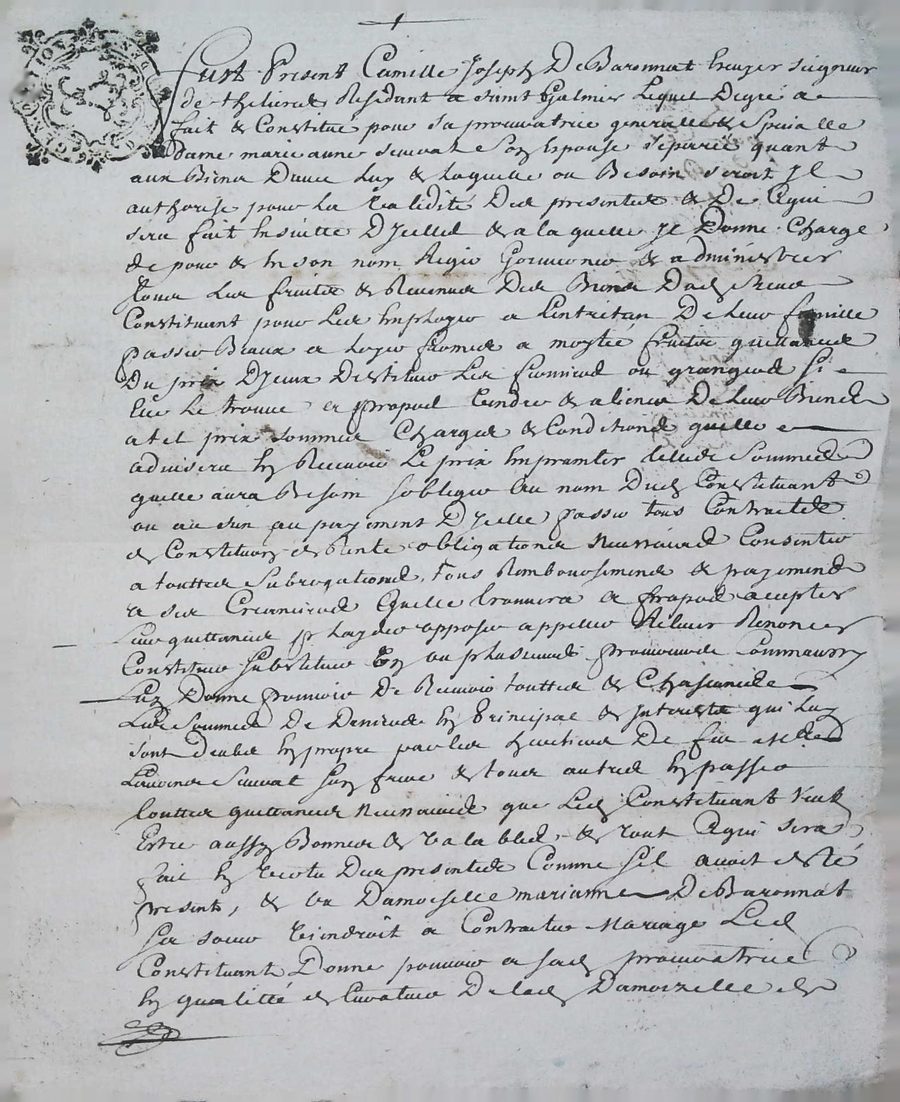 Fust Present Camille Joseph De Baronnat Escuyer Seigneur
de Thelieres Residant a saint Galmier Lequel De gré a
fait & Constitué pour sa procuratrice generalle & Specialle
Dame marie anne sauvat Son Epouse separée quant
aux Biens Davec Luy & Laquelle ou Besoin seroit Il
authorise pour La validité Des presentes & De Cequi
sera fait Ensuitte D'Icelles & a la quelle Il Donne Charge
de pour & En son nom Regir Gouverner & administrer
tous Les fruits & Revenus Des Biens Dud Sieur
Constituant pour Les Employer a Lentretien De Leur famille
passer Beaux a Loyer fermes a moytié fruits quittances
Du prix D'Iceux Destituer Les fermiers ou grangers si
Elle Le trouve a propos vendre & aliener De Leur Biens
a tel prix sommes Charges & Conditions quelle
advisera En Recevoir Le prix Emprunter telles Sommes
quelle aura Besoin sobliger au nom Dud Constituant
ou au sien au payement D'Icelles passer tous Contracts
de Constitution de Rente obligations necessaires Consentir
a touttes Subrogations, tous Remboursemens & payemens
a ses Creanciers Quelle trouvera a propos accepter
Leur quittances playder opposer appeller Relever Renoncer
Constituer Substituer Un ou plusieurs procureurs Comme aussy
Luy Donne pouvoir De Recevoir touttes & Chascunes
Les Sommes De Deniers En Principal & Interests qui Luy
sont deubes En propre par les heritiers De feu
Sauvat son frere & tous autres En passer
touttes quittances necessaires que Led Constituant veut
Estre aussy Bonnes & valables, & tout Cequi sera
fait En vertu Des presentes Comme sil avoit esté
present, & ou Damoiselle marianne De Baronnat
sa soeur viendroit a Contracter Mariage Led
Constituant Donne pouvoir a sad procuratrice
En qualitté de Curateur De lad Damoizelle de